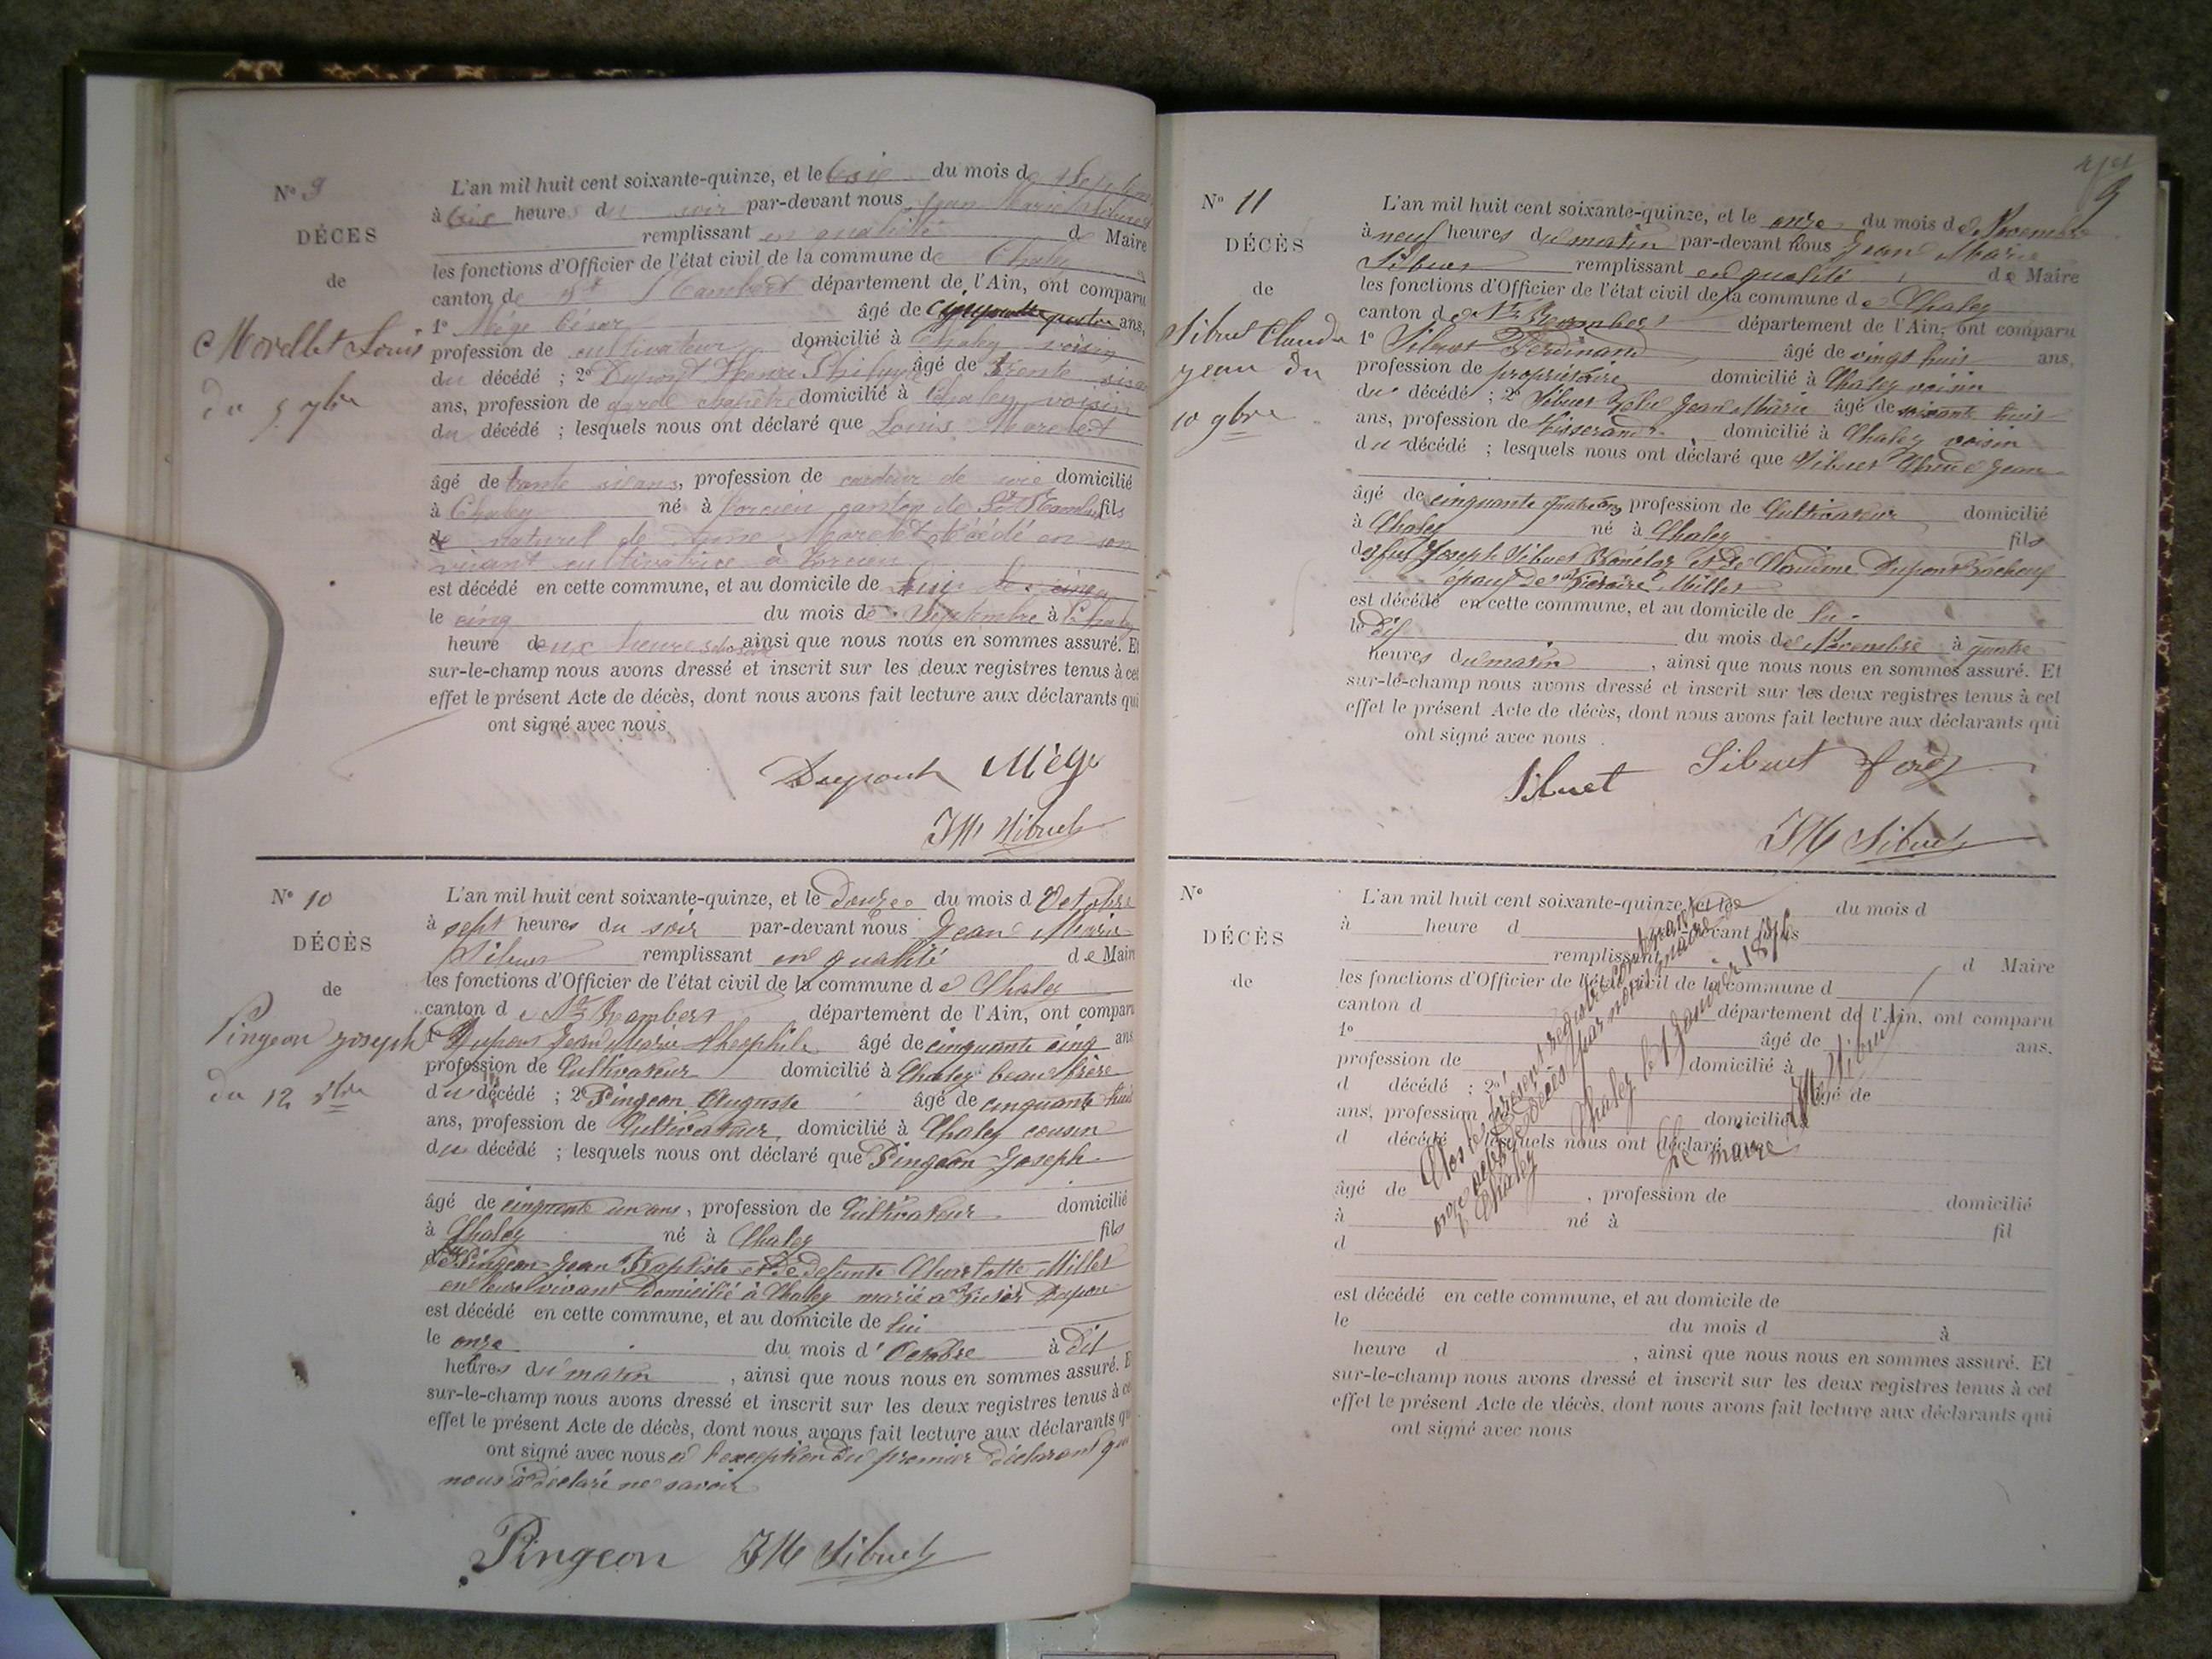 N° 9
DÉCES
de
Morellet Louis
du 5 7bre
L'an mil huit cent soixante-quinze, et le six du mois de Septembre
à six heures du soir par-devant nous Jean Marie Sibuet
remplissant en qualité de Maire
les fonctions d'Officier de l'état civil de la commune de Chaley
canton de St Rambert département de l'Ain, ont comparu
1° Mége César âgé de cinquante quatre ans,
profession de cultivateur domicilié à Chaley voisin
du décédé ; 2° Dupont âgé de trente
ans, profession de garde champêtre domicilié à Chaley voisin
du décédé ; lesquels nous ont déclaré que Louis Morellet
âgé de trente six ans, profession de cardeur de soie domicilié
à Chaley né à Torcieu canton de St Rambert fils
naturel de Morellet décédé en son
vivant cultivatrice à Torcieu
est décédé en cette commune, et au domicile de lui
le cinq du mois de Septembre à Chaley
heure deux heures ainsi que nous nous en sommes assuré. Et
sur-le-champ nous avons dressé et inscrit sur les deux registres tenus à cet
effet le présent Acte de décès, dont nous avons fait lecture aux déclarants qui
ont signé avec nous
Dupont Mège
JM Sibuet
N° 10
DÉCÈS
de
Pingeon Joseph
du 12 8bre
L'an mil huit cent soixante-quinze, et le douze du mois d Octobre
à sept heures du soir par-devant nous Jean Marie
Sibuet remplissant en qualité de Maire
les fonctions d'Officier de l'état civil de la commune de Chaley
canton de St Rambert département de l'Ain, ont comparu
1° Dupont Jean Marie Théophile âgé de cinquante cinq ans
profession de Cultivateur domicilié à Chaley beau frère
du décédé ; 2° Pingeon Auguste âgé de cinquante huit
ans, profession de Cultivateur domicilié à Chaley cousin
du décédé ; lesquels nous ont déclaré que Pingeon Joseph
âgé de cinquante un ans, profession de Cultivateur domicilié
à Chaley né à Chaley fils
de Pingeon Jean Baptiste et de defunte Charlotte Millet
en leur vivant domicilié à Chaley marié à Dupont
est décédé en cette commune, et au domicile de lui
le onze du mois d'Octobre à dix
heures du matin, ainsi que nous nous en sommes assuré. Et
sur-le-champ nous avons dressé et inscrit sur les deux registres tenus à cet
effet le présent Acte de décès, dont nous avons fait lecture aux déclarants qui
ont signé avec nous à l'exception du premier déclarant qui
nous à déclaré ne savoir
Pingeon JM Sibuet
9
N° 11
DÉCÈS
de
Sibuet Claude
Jean du
10 9bre
L'an mil huit cent soixante-quinze, et le onze du mois de Novembre
à neuf heures du matin par-devant nous Jean Marie
Sibuet remplissant en qualité de Maire
les fonctions d'Officier de l'état civil de la commune de Chaley
canton de St Rambert département de l'Ain, ont comparu
1° Sibuet Ferdinand âgé de vingt huit ans,
profession de propriétaire domicilié à Chaley voisin
du décédé ; 2° Sibuet Jean Marie âgé de soixante huit
ans, profession de tisserand domicilié à Chaley voisin
du décédé ; lesquels nous ont déclaré que Sibuet Claude Jean
âgé de cinquante quatre ans profession de Cultivateur domicilié
à Chaley né à Chaley fils
de feu Joseph Sibuet et de Claudine Dupont
époux de Millet
est décédé en cette commune, et au domicile de lui
le dix du mois de Novembre à quatre
heures du matin, ainsi que nous nous en sommes assuré. Et
sur-le-champ nous avons dressé et inscrit sur les deux registres tenus à cet
effet le présent Acte de décès, dont nous avons fait lecture aux déclarants qui
ont signé avec nous
Sibuet Sibuet ferd
JM Sibuet
N°
DÉCÈS
de
L'an mil huit cent soixante-quinze, et le du mois d
à heure d par-devant nous
remplissant d Maire
les fonctions d'Officier de l'état civil de la commune d
canton d département de l'Ain, ont comparu
1° âgé de ans,
profession de domicilié à
d décédé ; 2° âgé de
ans, profession de domicilié à
d décédé ; lesquels nous ont déclaré
âgé de , profession de domicilié
à né à fil
d
est décédé en cette commune, et au domicile de
le du mois d à
heure d , ainsi que nous nous en sommes assuré. Et
sur-le-champ nous avons dressé et inscrit sur les deux registres tenus à cet
effet le présent Acte de décès, dont nous avons fait lecture aux déclarants qui
ont signé avec nous
Clos le présent registre contenant
onze actes de décès par nous maire
de Chaley
Chaley le 1 Janvier 1876
Le maire
JM Sibuet